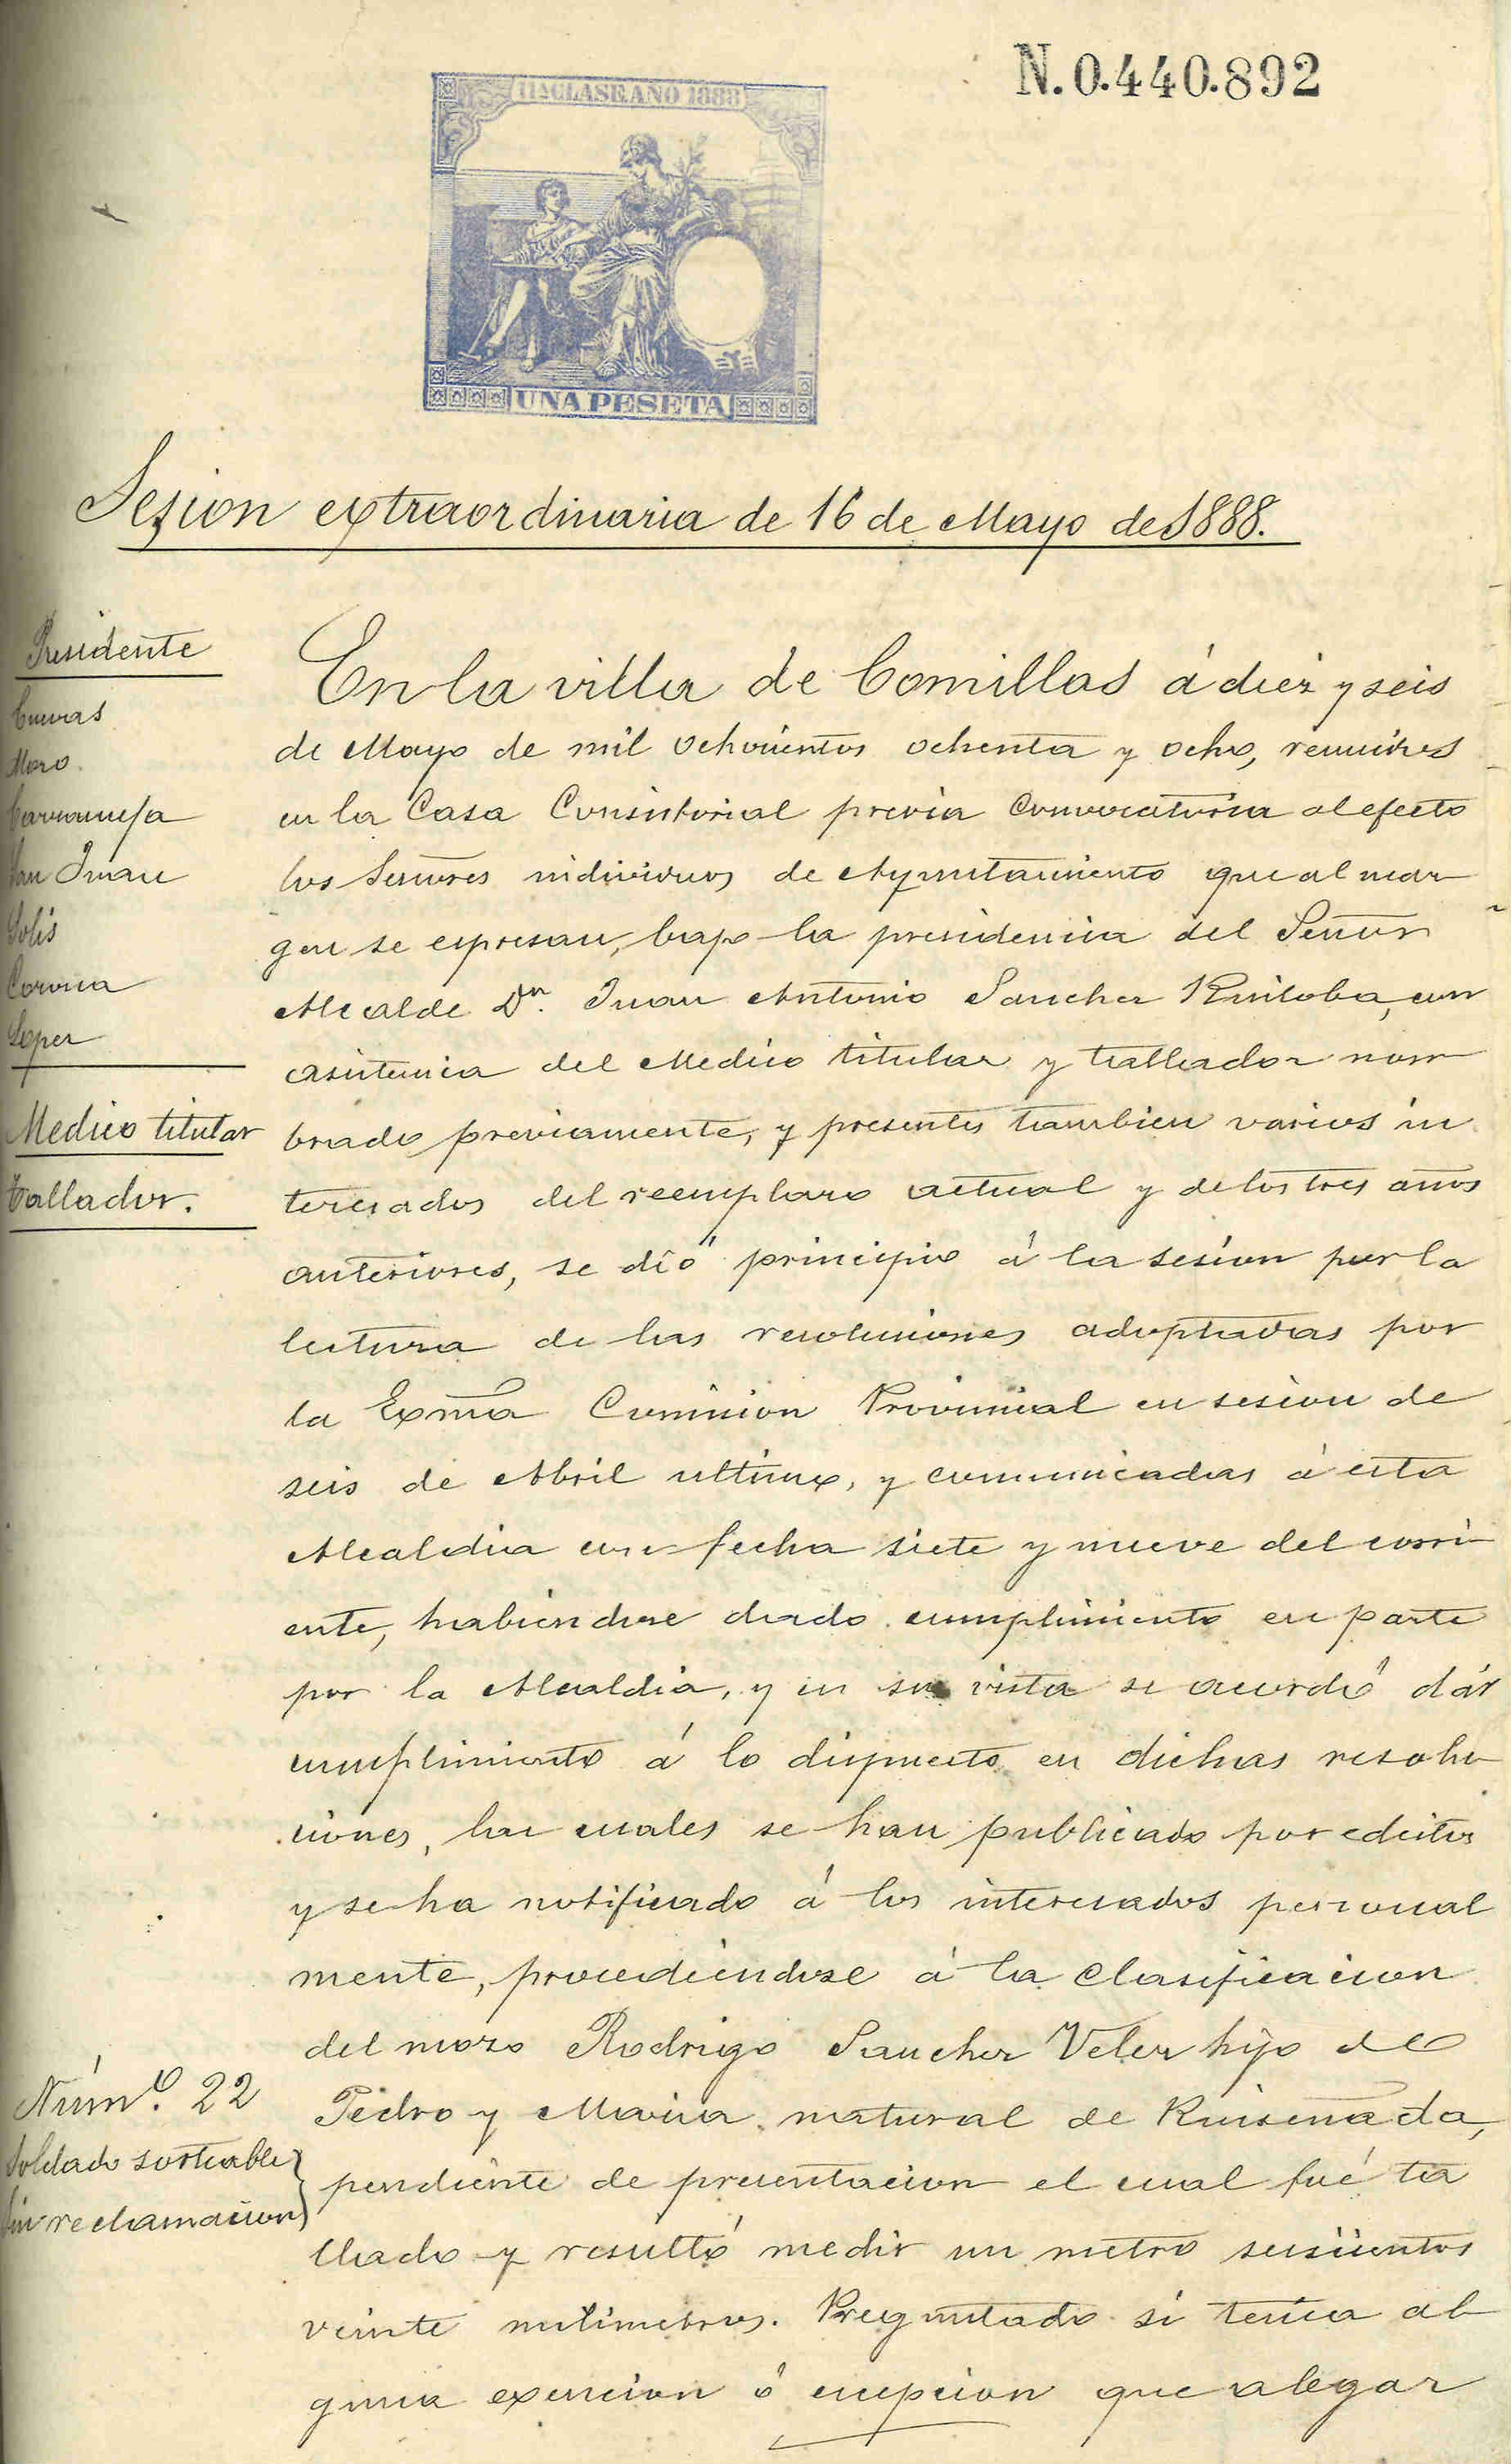 N.0.440.892
11ª CLASE AÑO 1888
UNA PESETA
Sesion extraordinaria de 16 de Mayo de 1888.
Presidente
Cuevas
Moro.
San Juan
Solís
Corona
Lopez
Medico titular
Tallador.
En la villa de Comillas á diez y seis
de Mayo de mil ochocientos ochenta y ocho, reunidos
en la Casa Consistorial previa convocatoria al efecto
los Señores individuos de Ayuntamiento que al mar
gen se espresan, bajo la presidencia del Señor
Alcalde Dn. Juan Antonio Sanchez Ruiloba, con
asistencia del Medico titular y tallador nom
brado previamente, y presentes tambien varios in
teresados del reemplazo actual y de los tres años
anteriores, se dió principio á la sesion por la
lectura de las resoluciones adoptadas por
la Exma Comision Provincial en sesion de
seis de Abril ultimo, y comunicadas á esta
Alcaldia con fecha siete y nueve del corri
ente, habiendose dado cumplimiento en parte
por la Alcaldia, y en su vista se acordó dár
cumplimiento á lo dispuesto en dichas resolu
ciones, las cuales se han publicado por edictos
y se ha notificado á los interesados personal
mente, procediéndose á la clasificacion
del mozo Rodrigo Sanchez Velez hijo de
Núm.o 22
Pedro y Maria, natural de Ruiseñada,
Soldado sorteable
pendiente de presentacion el cual fué ta
sin reclamacion
llado y resultó medir un metro seiscientos
veinte milimetros. Preguntado si tenia al
guna exencion ó escepcion que alegar